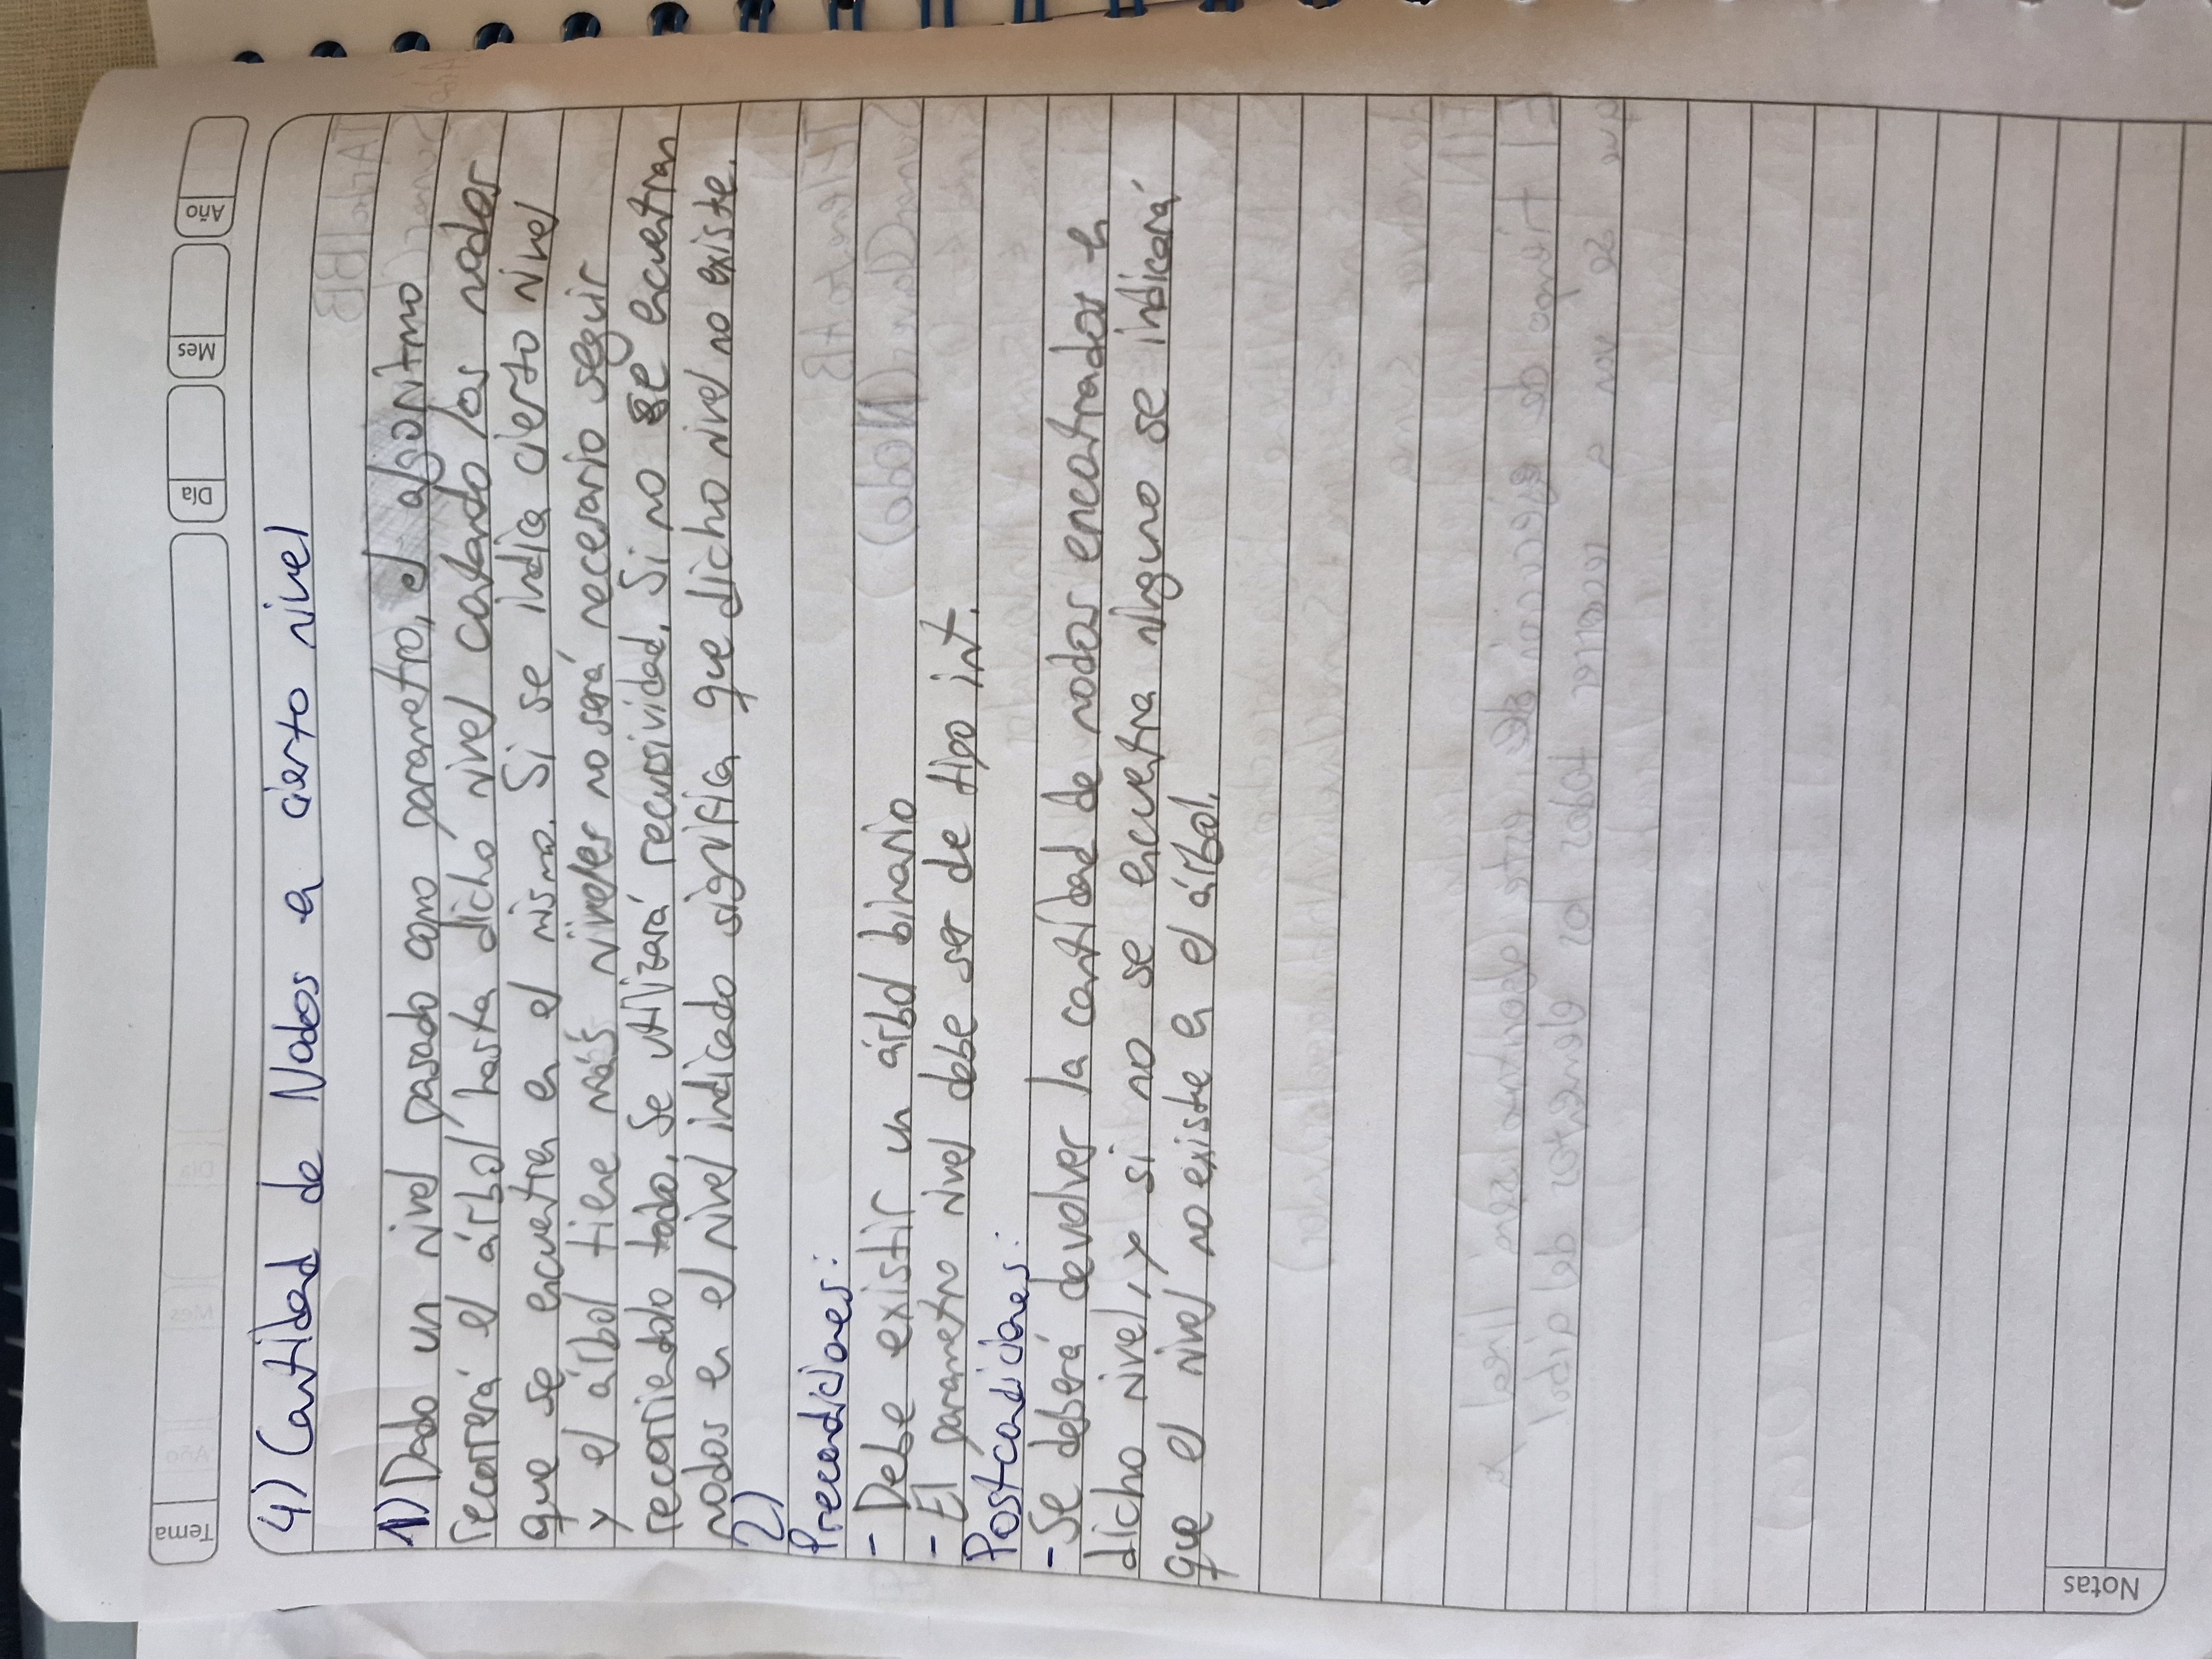 Tema
Día
Mes
Año
4) Cantidad de Nodos en cierto nivel
1) Dado un nivel pasado como parametro, el algoritmo
recorrerá el árbol hasta dicho nivel contando los nodos
que se encuentren en el mismo. Si se indica cierto nivel
y el árbol tiene más niveles no será necesario seguir
recorriendolo todo. Se utilizará recursividad. Si no se encuentran
nodos en el nivel indicado significa que dicho nivel no existe.
2)
Precondiciones:
- Debe existir un árbol binario
- El parametro nivel debe ser de tipo int.
Postcondiciones:
- Se deberá devolver la cantidad de nodos encontrados en
dicho nivel, y si no se encuentra ninguno se indicará
que el nivel no existe en el árbol.
Notas